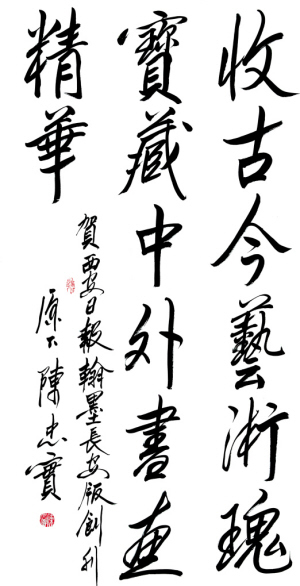 收古今藝術瑰
寶藏中外書畫
精華
賀西安日報翰墨長安版創刊
原下陳忠實